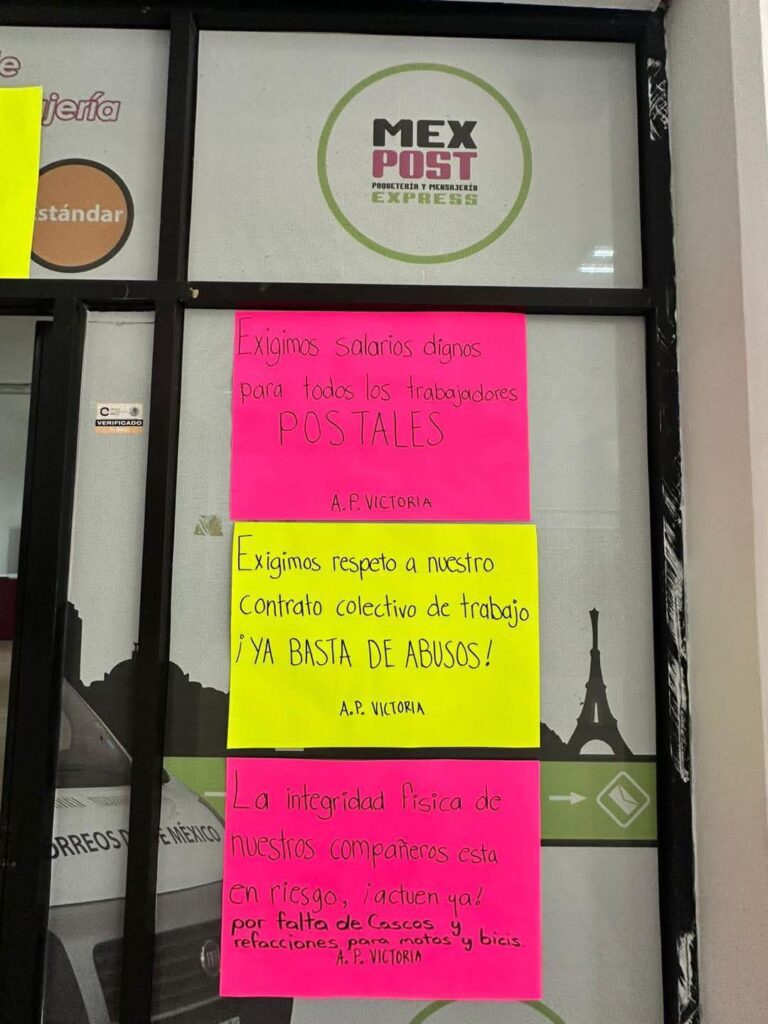 e
jería
stándar
MEX
POST
PAQUETERÍA Y MENSAJERÍA
EXPRESS
Exigimos salarios dignos
para todos los trabajadores
POSTALES
A.P. VICTORIA
VERIFICADO
Exigimos respeto a nuestro
contrato colectivo de trabajo
¡YA BASTA DE ABUSOS!
A.P. VICTORIA
La integridad fisica de
nuestros compañeros esta
en riesgo, ¡actuen ya!
por falta de Cascos y
refacciones para motos y bicis.
A.P. VICTORIA
ORREOS DE MÉXICO